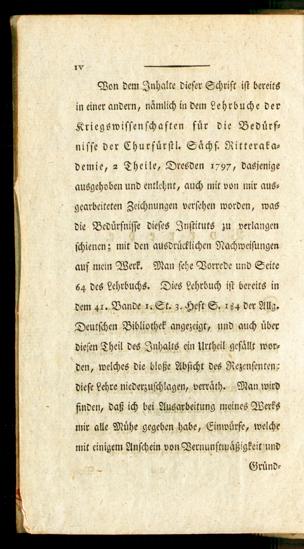 IV
Von dem Inhalte dieser Schrift ist bereits
in einer andern, nämlich in dem Lehrbuche der
Kriegswissenschaften für die Bedürf-
nisse der Churfürstl. Sächs. Ritteraka-
demie, 2 Theile, Dresden 1797, dasjenige
ausgehoben und entlehnt, auch mit von mir aus-
gearbeiteten Zeichnungen versehen worden, was
die Bedürfnisse dieses Instituts zu verlangen
schienen; mit den ausdrücklichen Nachweisungen
auf mein Werk. Man sehe Vorrede und Seite
64 des Lehrbuchs. Dies Lehrbuch ist bereits in
dem 41. Bande 1. St. 3. Heft S. 184 der Allg.
Deutschen Bibliothek angezeigt, und auch über
diesen Theil des Inhalts ein Urtheil gefällt wor-
den, welches die bloße Absicht des Rezensenten:
diese Lehre niederzuschlagen, verräth. Man wird
finden, daß ich bei Ausarbeitung meines Werks
mir alle Mühe gegeben habe, Einwürfe, welche
mit einigem Anschein von Vernunftmäßigkeit und
Gründ-